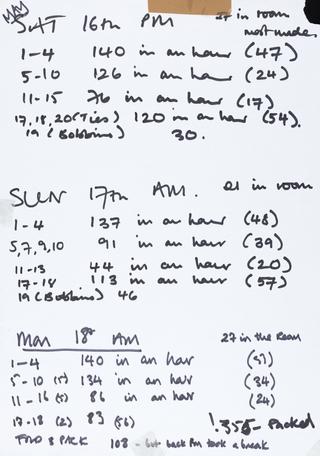 MAY
SAT 16th PM 27 in room
most made.
1-4 140 in an hour (47)
5-10 126 in an hour (24)
11-15 76 in an hour (17)
17,18,20 (Ties) 120 in an hour (54).
19 (Bobbins) 30.
SUN 17th AM. 21 in room
1-4 137 in an hour (48)
5,7,9,10 91 in an hour (39)
11-13 44 in an hour (20)
17-18 113 in an hour (57)
19 (Bobbins) 46
Mon 18th AM 27 in the Room
1-4 140 in an hour
5-10 (5) 134 in an hour (34)
11-16 (5) 86 in an hour (24)
17-18 (2) 83 (56)
355 - Packed
PACK 108 - but back Pm took a break